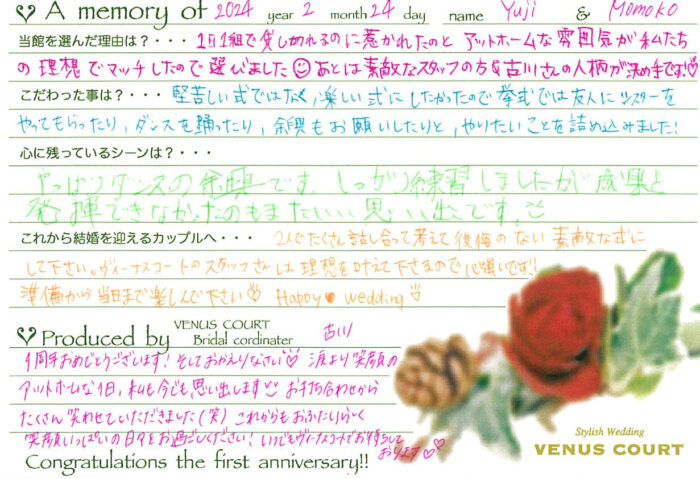 A memory of 2024 year 2 month 24 day name Yuji & Momoko
当館を選んだ理由は？・・・ 1日1組で貸し切れるのに惹かれたのと アットホームな雰囲気が私たち
の理想でマッチしたので選びました☺あとは素敵なスタッフの方&古川さんの人柄が決め手です
こだわった事は？・・・ 堅苦しい式ではなく、楽しい式にしたかったので挙式では友人にシスターを
やってもらったり、ダンスを踊ったり、余興もお願いしたりと、やりたいことを詰め込みました!
心に残っているシーンは？・・・
やっぱりダンスの余興です、しっかり練習しましたが成果を
発揮できなかったのもまたいい思い出です
これから結婚を迎えるカップルへ・・・ 2人でたくさん話し合って考えて後悔のない素敵な式に
して下さい。ヴィーナスコートのスタッフさんは理想を叶えて下さるので心強いです!!
準備から当日まで楽しんで下さい Happy♥wedding
Produced by VENUS COURT
Bridal cordinater 古川
1周年おめでとうございます! そしておかえりなさい♡ 涙より笑顔の
アットホームな1日、私も今でも思い出します お打ち合わせから
たくさん笑わせていただきました(笑) これからもおふたりらしく
笑顔いっぱいの日々をお過ごしください! いつでもヴィーナスコートでお待ちして
おります♡♡
Congratulations the first anniversary!!
Stylish Wedding
VENUS COURT